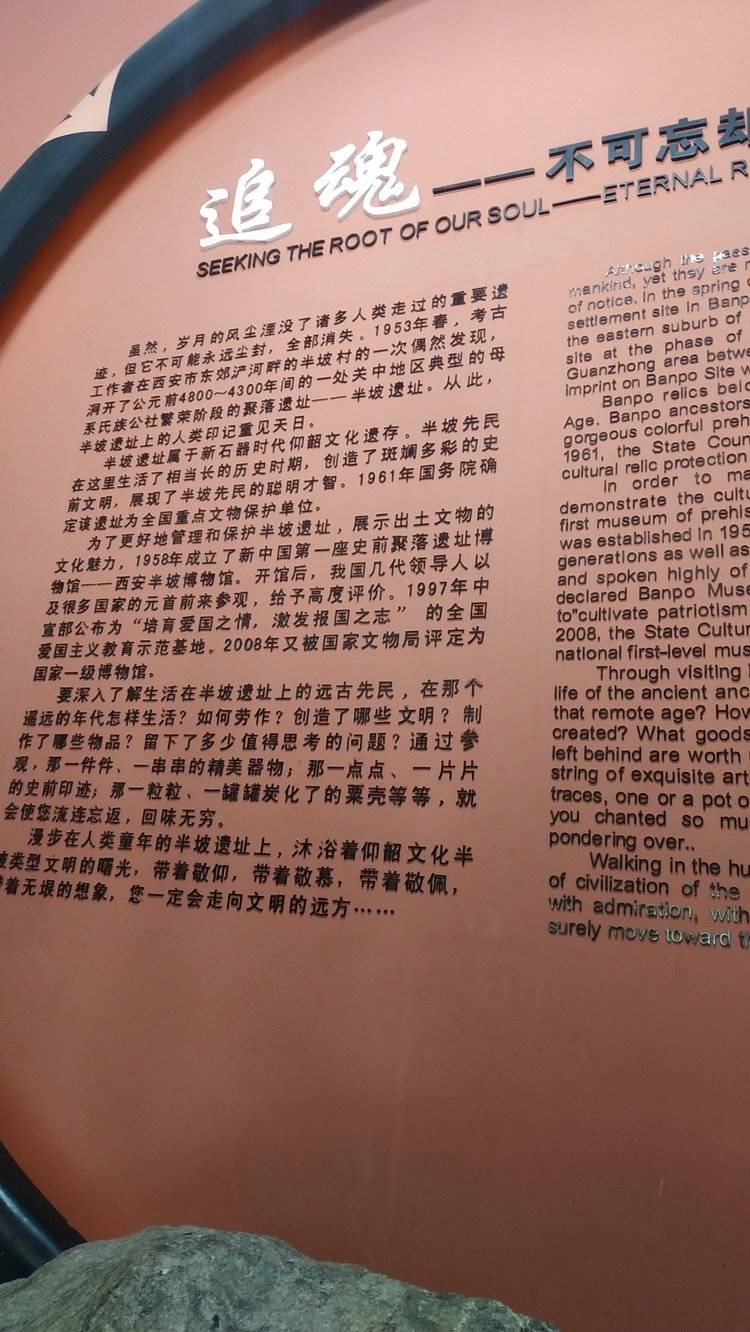 追魂——不可忘却
SEEKING THE ROOT OF OUR SOUL——ETERNAL R
虽然，岁月的风尘湮没了诸多人类走过的重要遗
迹，但它不可能永远尘封，全部消失。1953年春，考古
工作者在西安市东郊浐河畔的半坡村的一次偶然发现，
洞开了公元前4800～4300年间的一处关中地区典型的母
系氏族公社繁荣阶段的聚落遗址——半坡遗址。从此，
半坡遗址上的人类印记重见天日。
半坡遗址属于新石器时代仰韶文化遗存。半坡先民
在这里生活了相当长的历史时期，创造了斑斓多彩的史
前文明，展现了半坡先民的聪明才智。1961年国务院确
定该遗址为全国重点文物保护单位。
为了更好地管理和保护半坡遗址，展示出土文物的
文化魅力，1958年成立了新中国第一座史前聚落遗址博
物馆——西安半坡博物馆。开馆后，我国几代领导人以
及很多国家的元首前来参观，给予高度评价。1997年中
宣部公布为“培育爱国之情，激发报国之志”的全国
爱国主义教育示范基地。2008年又被国家文物局评定为
国家一级博物馆。
要深入了解生活在半坡遗址上的远古先民，在那个
遥远的年代怎样生活？如何劳作？创造了哪些文明？制
作了哪些物品？留下了多少值得思考的问题？通过参
观，那一件件、一串串的精美器物；那一点点、一片片
的史前印迹；那一粒粒、一罐罐炭化了的粟壳等等，就
会使您流连忘返，回味无穷。
漫步在人类童年的半坡遗址上，沐浴着仰韶文化半
坡类型文明的曙光，带着敬仰，带着敬慕，带着敬佩，
带着无垠的想象，您一定会走向文明的远方……
Although the pass
mankind, yet they are n
of notice. In the spring o
settlement site in Banp
the eastern suburb of
site at the phase of
Guanzhong area betwe
imprint on Banpo Site w
Banpo relics belo
Age. Banpo ancestors
gorgeous colorful preh
1961, the State Coun
cultural relic protection
In order to ma
demonstrate the cultu
first museum of prehis
was established in 195
generations as well as
and spoken highly of
declared Banpo Muse
to"cultivate patriotism
2008, the State Cultur
national first-level mus
Through visiting
life of the ancient anc
that remote age? How
created? What goods
left behind are worth
string of exquisite art
traces, one or a pot o
you chanted so mu
pondering over..
Walking in the hu
of civilization of the
with admiration, with
surely move toward th